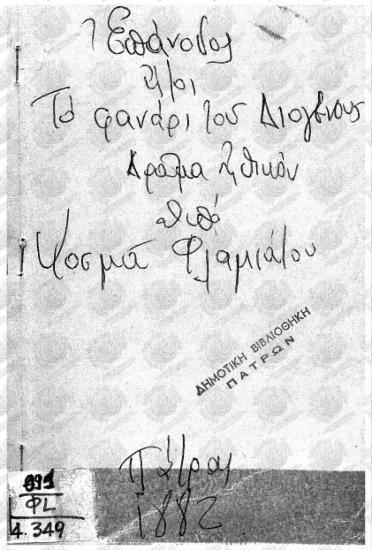 Ἐπάνοδος
ἤτοι
Τὸ φανάρι τοῦ Διογένους
Δρᾶμα ἠθικόν
ὑπὸ
Κοσμᾶ Φλαμιάτου
ΔΗΜΟΤΙΚΗ ΒΙΒΛΙΟΘΗΚΗ
ΠΑΤΡΩΝ
Πάτραι
1882
891
ΦL
4.349